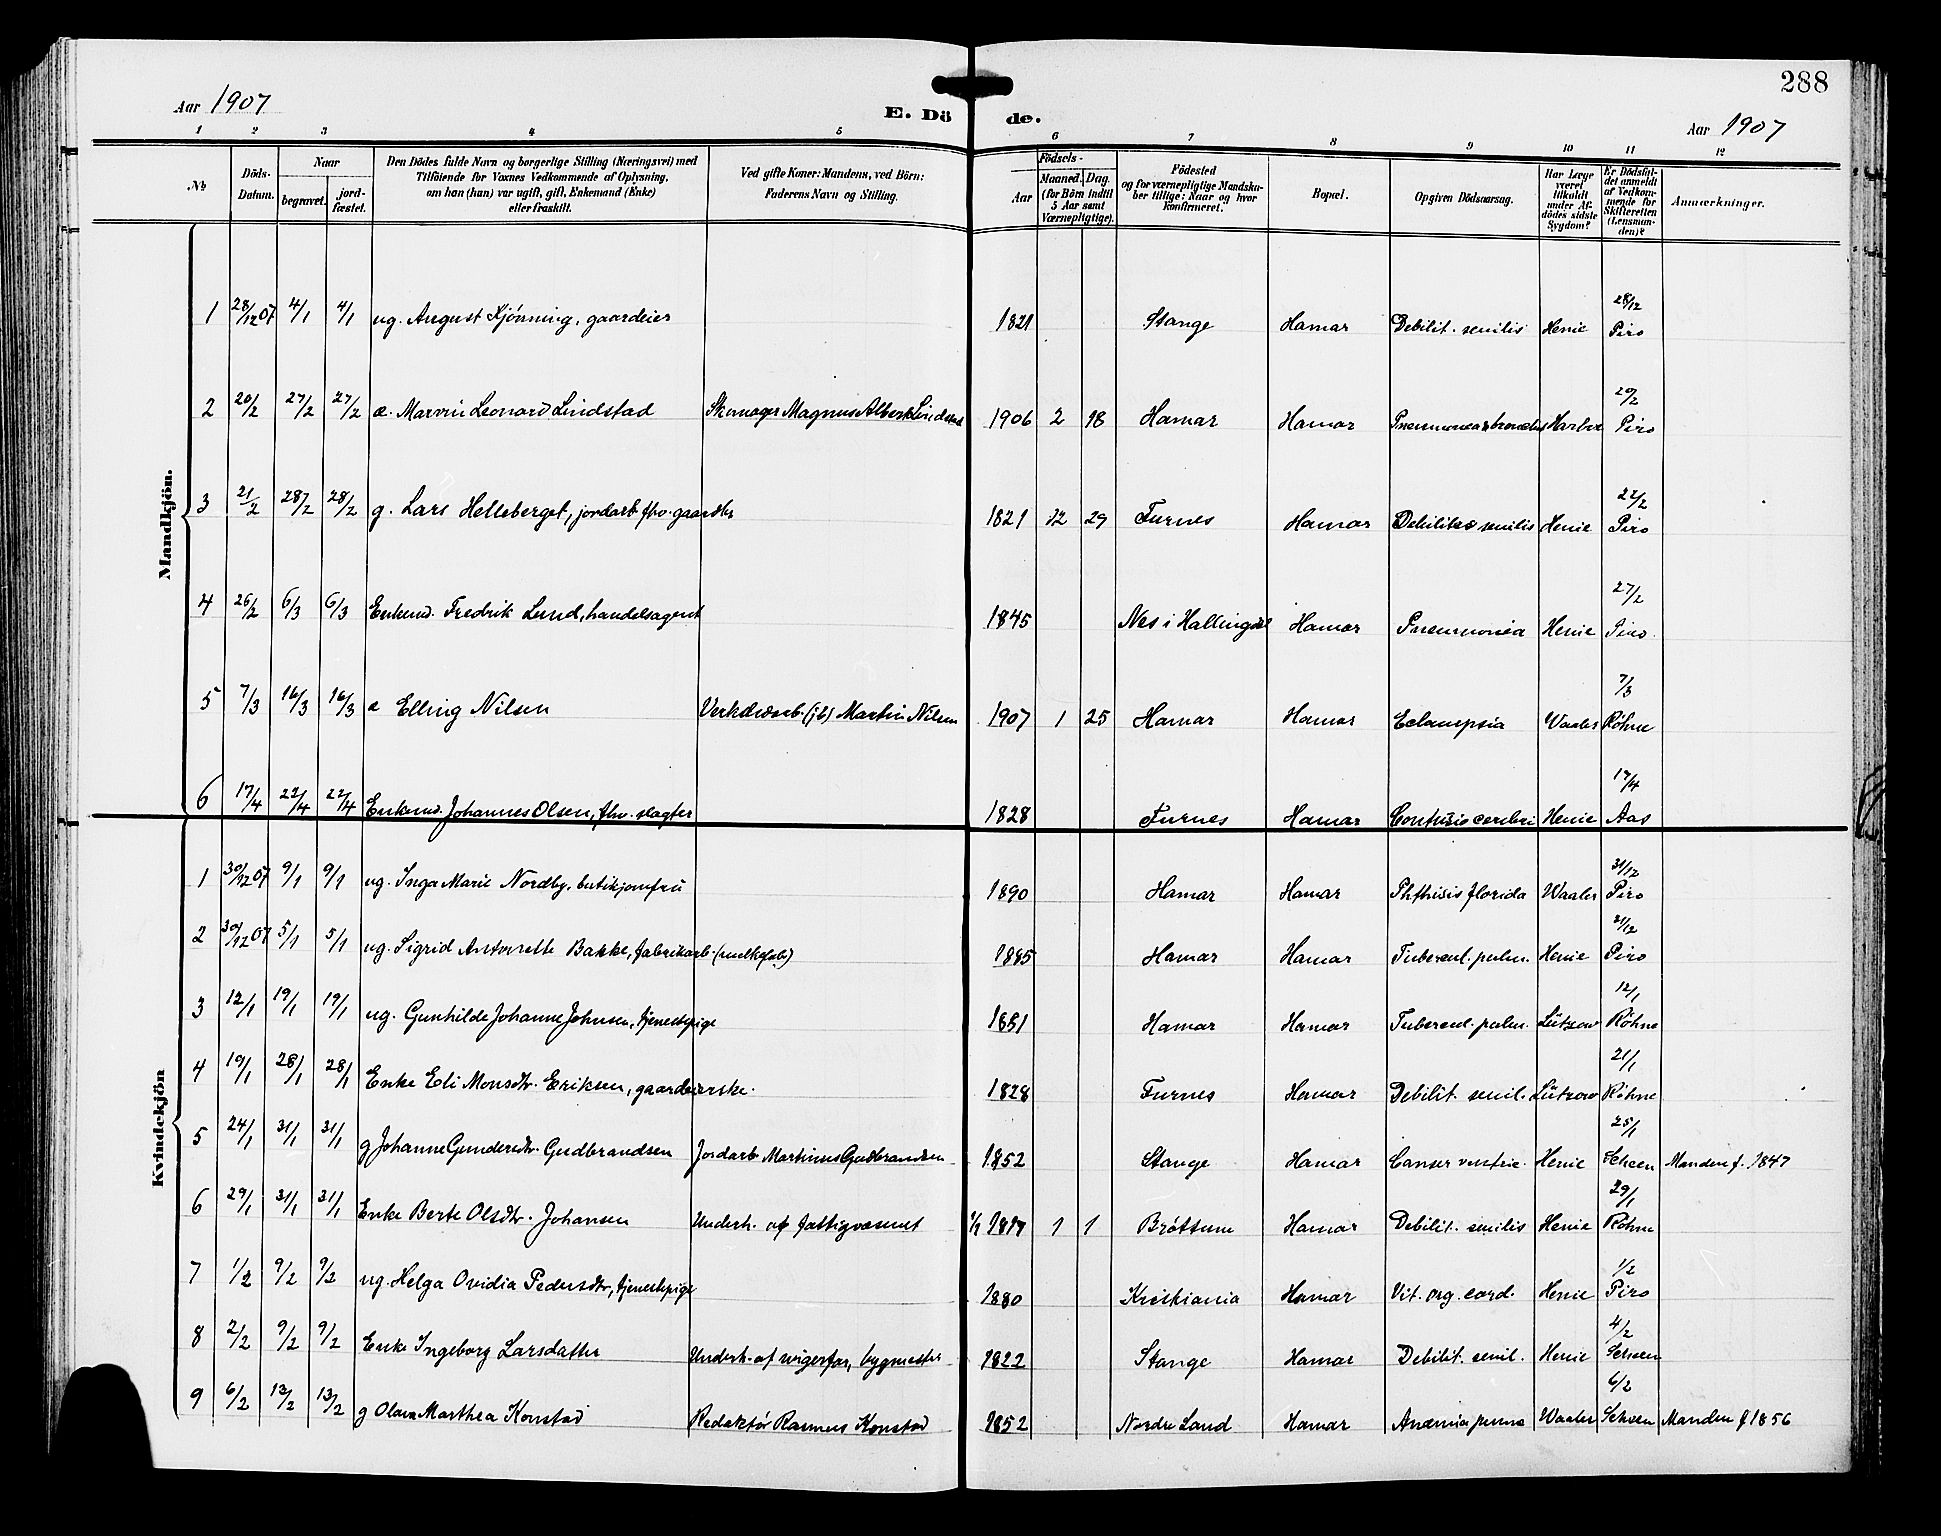 288
Aar 1907
E. Dö de.
Aar 1907
1 2 3 4 5 6 7 8 9 10 11 12
No.
Döds-Datum.
Naar
begravet.
jord-fæstet.
Den Dödes fulde Navn og borgerlige Stilling (Næringsvei) med
Tilföiende for Voxnes Vedkommende af Oplysning,
om han (hun) var ugift, gift, Enkemand (Enke)
eller fraskilt.
Ved gifte Koner: Mandens, ved Börn:
Faderens Navn og Stilling.
Födsels-
Aar
Maaned. Dag.
(for Börn indtil
5 Aar samt
Værnepligtige).
Födested
og for værnepligtige Mandska-
ber tillige: Naar og hvor
konfirmeret.
Bopæl.
Opgiven Dödsaarsag.
Har Læge
været
tilkaldt
under Af-
dödes sidste
Sygdom?
Er Dödsfal-
det anmeldt
af Vedkom-
mende for
Skifteretten
(Lensman-
den)?
Anmærkninger.
Mandkjön.
1 28/12 07 4/1 4/1 ug. August Kjönning, gaardeier 1821 Stange Hamar Debilit. senilis Henie 28/12 Piro
2 20/2 27/2 27/2 æ. Marvin Leonard Lindstad Skomager Magnus Albert Lindstad 1906 2 18 Hamar Hamar 20/2 Piro
3 21/2 28/2 28/2 g. Lars Helleberget, jordarb. fhv. gaardbr 1821 12 29 Furnes Hamar Debilitas senilis Henie 22/2 Piro
4 26/2 6/3 6/3 Enkem. Fredrik Lund, handelsagent 1845 Nes i Hallingdal Hamar Pneumonia Henie 27/2 Piro.
5 7/3 16/3 16/3 æ Elling Nilsen Verkstedarb. (jb) Martin Nilsen 1907 1 25 Hamar Hamar Eclampsia Waaler 7/3 Röhne
6 17/4 22/4 22/4 Enkem. Johannes Olsen, fhv. slagter 1828 Furnes Hamar Contusio cerebri Henie 17/4 Aas
Kvindekjön
1 30/12 07 9/1 9/1 ug. Inga Marie Nordby, butikjomfru 1890 Hamar Hamar Phthisis florida Waaler 31/12 Piro
2 30/12 07 5/1 5/1 ug. Sigrid Antonette Bakke, fabrikarb. (melkefab.) 1885 Hamar Hamar Tubercul. pulm. Henie 31/12 Piro
3 12/1 19/1 19/1 ug. Gunhilde Johanne Johnsen, tjenestepige Hamar Hamar Tubercul. pulm. Lützow 12/1 Röhne
4 19/1 28/1 28/1 Enke Eli Monsdtr. Eriksen, gaardeierske. 1828 Furnes Hamar Debilit. senil. Lützow 21/1 Röhne
5 24/1 31/1 31/1 g Johanne Gundersdtr. Gudbrandsen Jordarb Martinus Gudbrandsen 1852 Stange Hamar Canser ventric. Henie 25/1 Scheen Manden f. 1847
6 29/1 31/1 31/1 Enke Berte Olsdtr. Johansen Underh. af fattigvæsenet 1/1 1817 1 1 Bröttum Hamar Debilit. senilis Henie 29/1 Röhne
7 1/2 9/2 9/2 ug. Helga Ovidia Pedersdtr, tjenestepige 1880 Kristiania Hamar Vit. org. cord. Henie 1/2 Piro
8 2/2 9/2 9/2 Enke Ingeborg Larsdatter Underh. af svigerfar, bygmester 1822 Stange Hamar Debilit. senil. Henie 4/2 Scheen
9 6/2 13/2 13/2 g Olava Marthea Konstad Redaktör Rasmus Konstad 1852 Nordre Land Hamar Anæmia perns Waaler 6/2 Scheen Manden f 1856